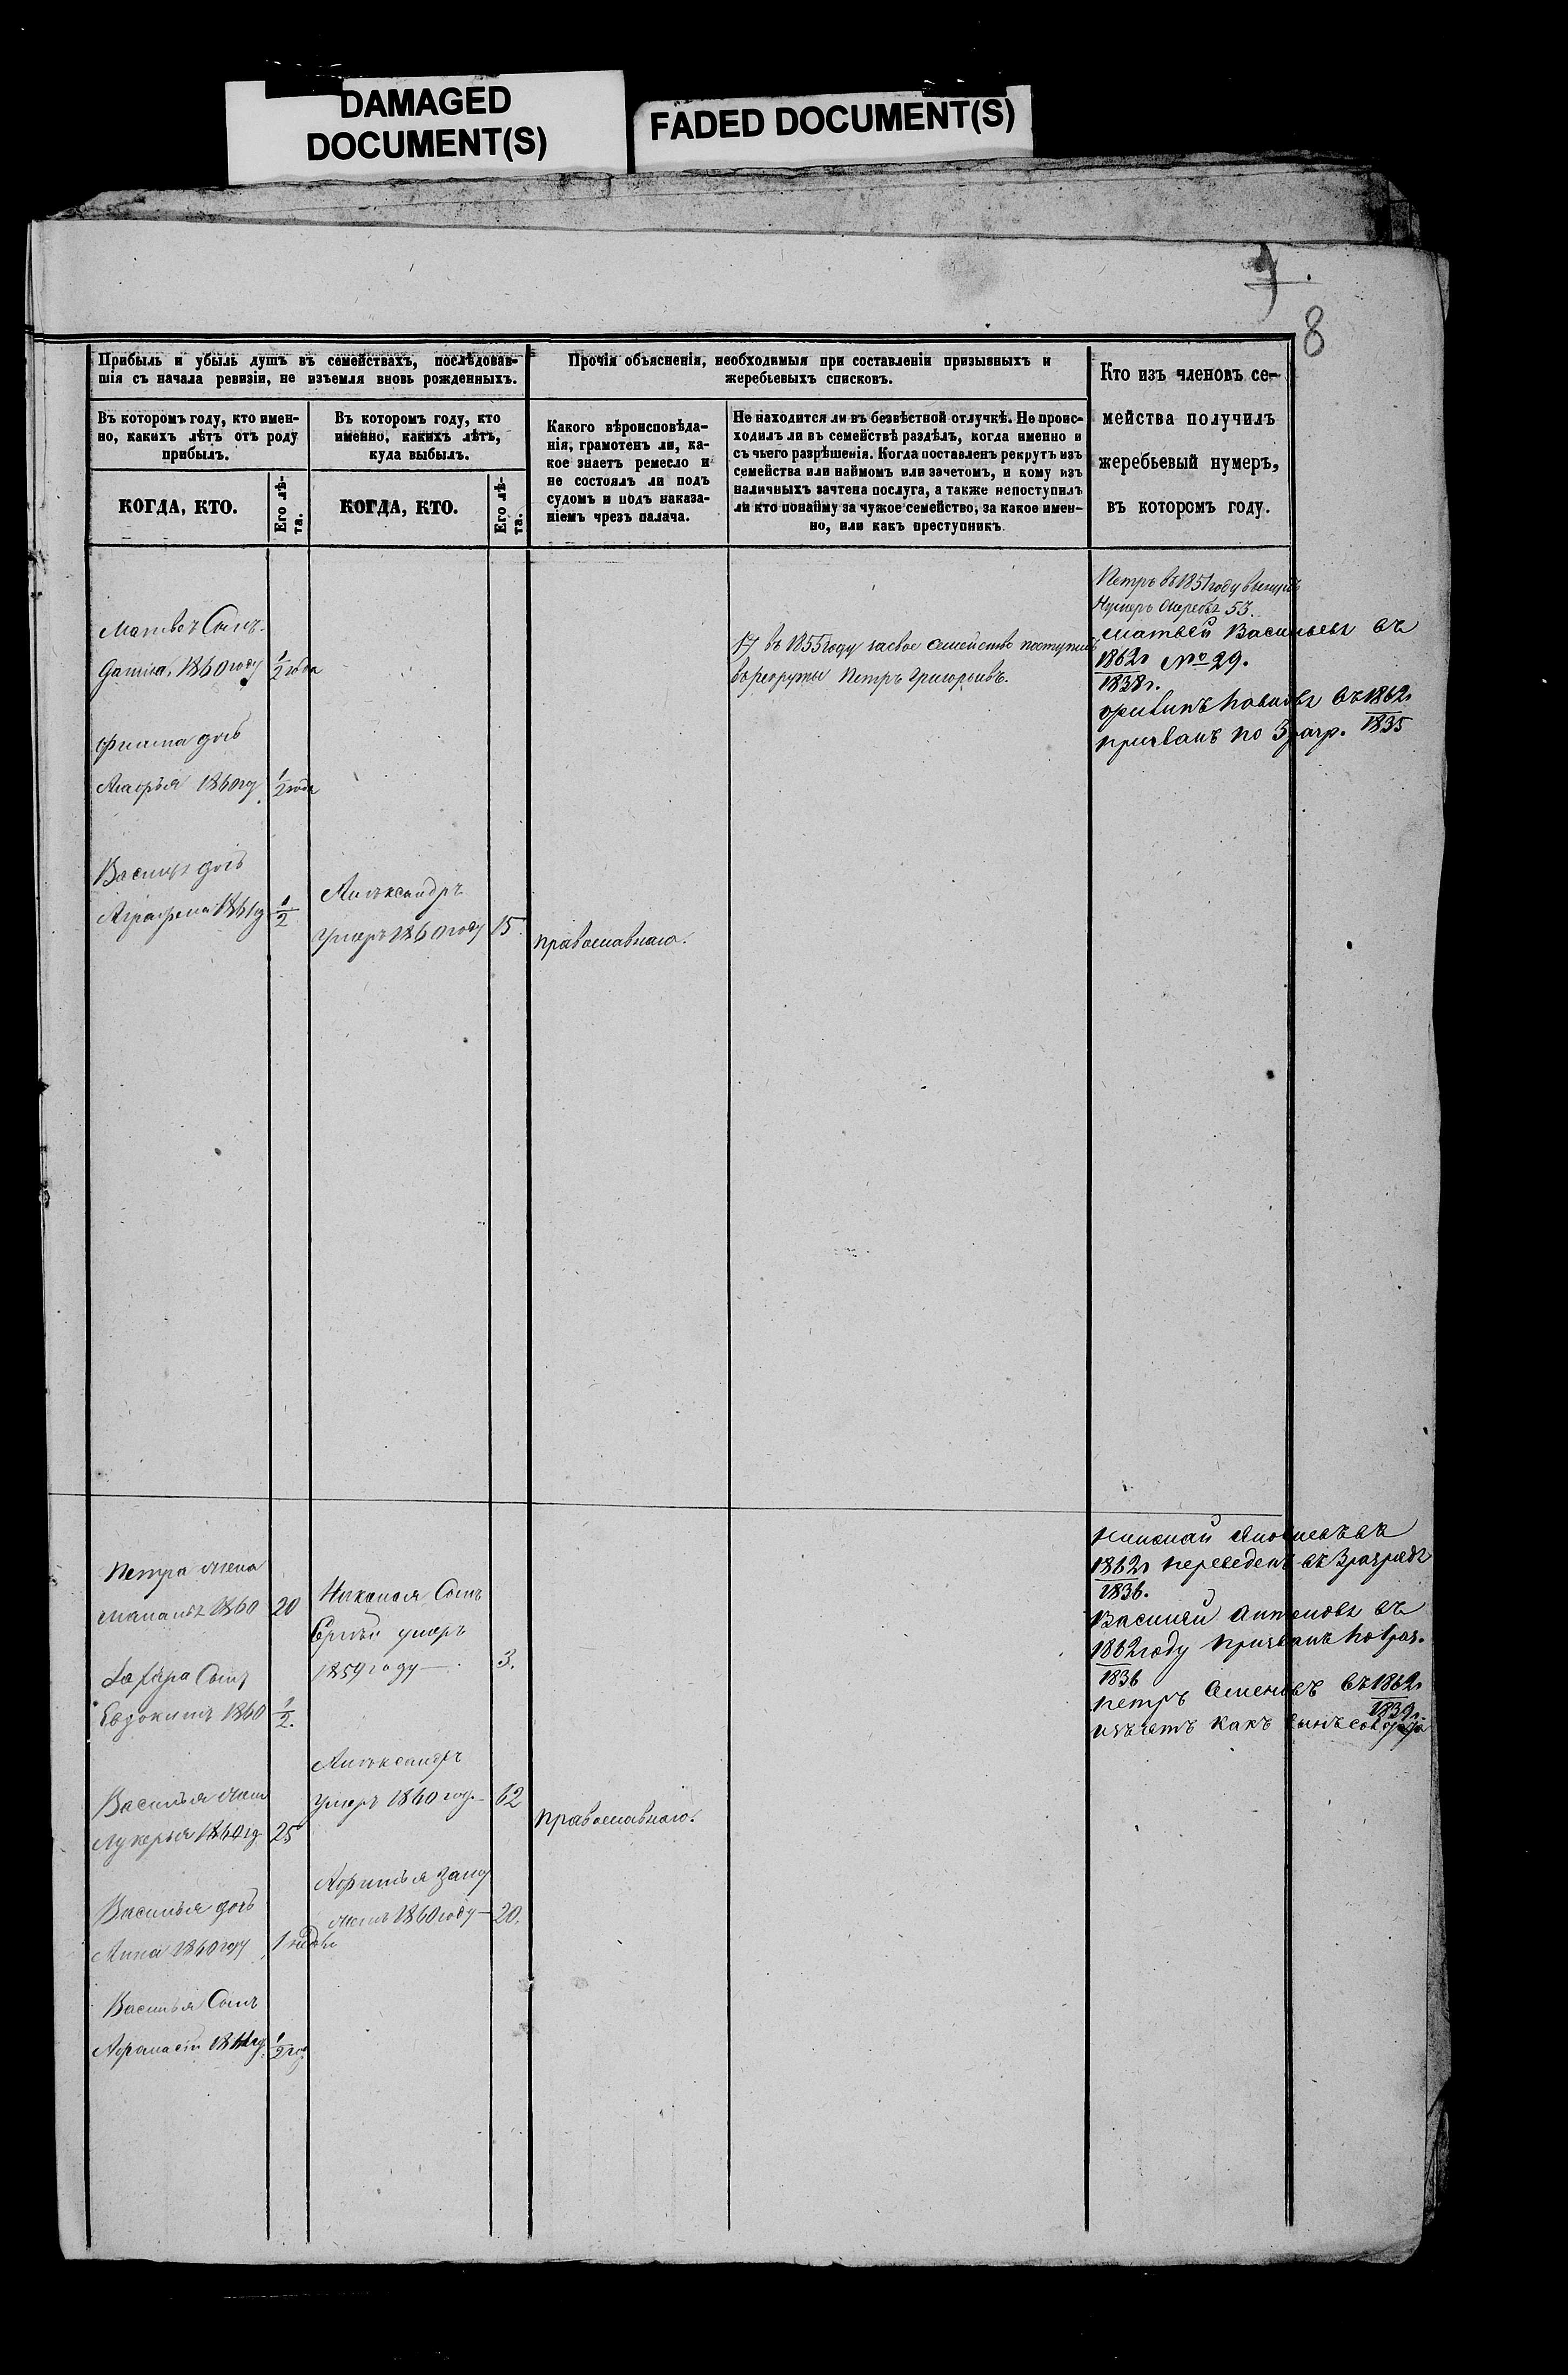 DAMAGED
DOCUMENT(S)
FADED DOCUMENT(S)
8
Прибыль и убыль душъ въ семействахъ, послѣдовав-
шія съ начала ревизіи, не изъемля вновь рожденныхъ.
Въ которомъ году, кто имен-
но, какихъ лѣтъ отъ роду
прибылъ.
КОГДА, КТО.
Его лѣ-
та.
Въ которомъ году, кто
именно, какихъ лѣтъ,
куда выбылъ.
КОГДА, КТО.
Его лѣ-
та.
Прочія объясненія, необходимыя при составленіи призывныхъ и
жеребьевыхъ списковъ.
Какого вѣроисповѣда-
нія, грамотенъ ли, ка-
кое знаетъ ремесло и
не состоялъ ли подъ
судомъ и подъ наказа-
ніемъ чрезъ палача.
Не находится ли въ безвѣстной отлучкѣ. Не проис-
ходилъ ли въ семействѣ раздѣлъ, когда именно и
съ чьего разрѣшенія. Когда поставленъ рекрутъ изъ
семейства или наймомъ или зачетомъ, и кому изъ
наличныхъ зачтена послуга, а также непоступилъ
ли кто понайму за чужое семейство, за какое имен-
но, или какъ преступникъ.
Кто изъ членовъ се-
мейства получилъ
жеребьевый нумеръ,
въ которомъ году.
Сынъ
1860 году 1/2 года
дочь
1860 г 1/2 года
дочь
1861 г 1/2
Александръ
умеръ 1860 году 15
православнаго.
17 въ 1855 году засвое семейство поступилъ
врекруты Петръ Григорьевъ.
Петръ въ 1851 году
Нумеръ 53.
Матвей Васильевъ въ
1862 г № 29.
1838 г.
въ 1862 г
призванъ по 3 разр. 1835
Петра жена
1860 20
Сынъ
Евдокимъ 1860 1/2.
Василья жена
Лукерья 1860 г 25
Василья дочь
Анна 1860 году 1 недѣли
Василья Сынъ
Афанасій 1/2 го
Николая Сынъ
умеръ
1859 году 3.
Александръ
умеръ 1860 год 62
заму
жемъ 1860 году 20.
православнаго.
Николай въ
1862 г переведенъ въ 3 разрядъ
1836.
Василий Антоновъ въ
1862 году призванъ по 1 раз.
1836
Петръ Семеновъ въ 1862 г
1839 г.
какъ